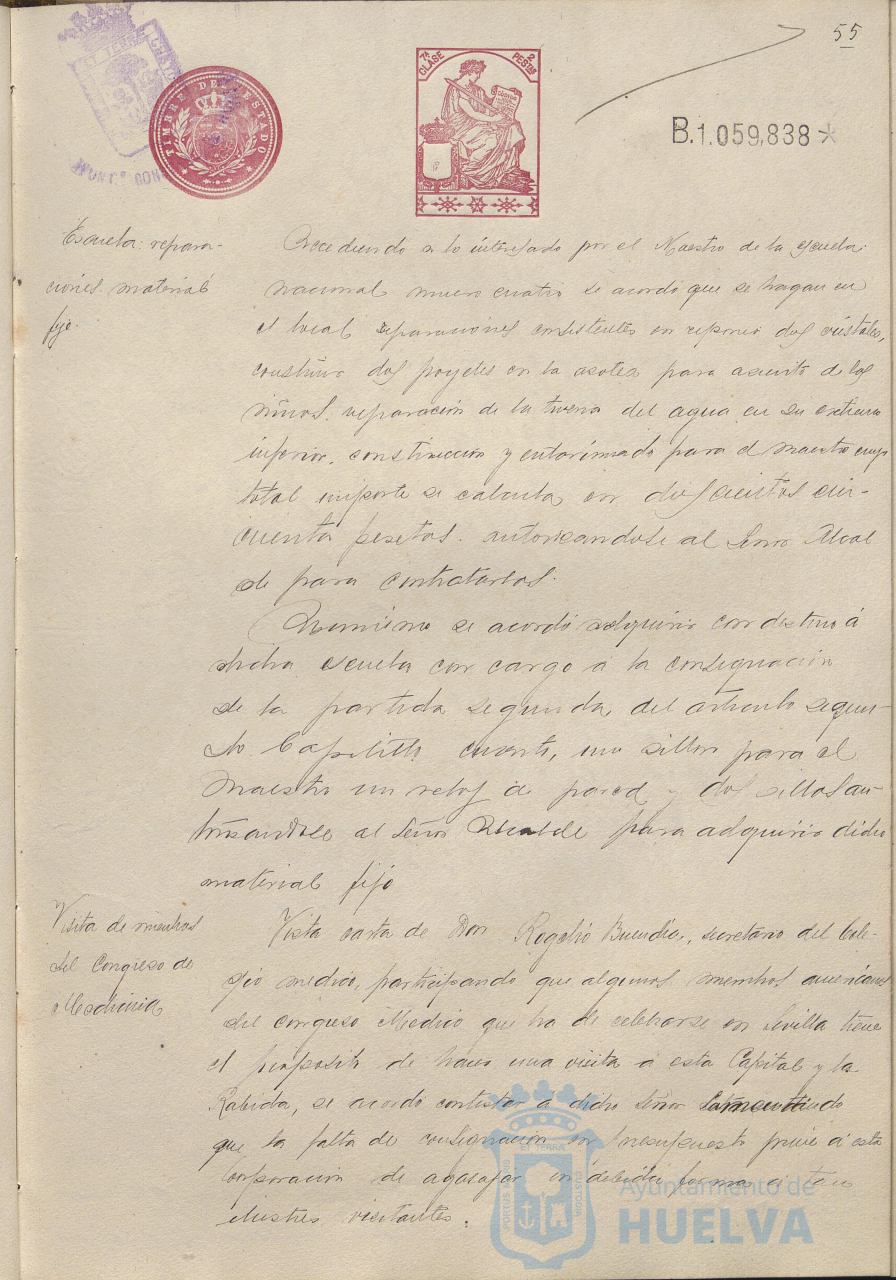 55
7ª CLASE 2 PESTAS
TIMBRE DEL ESTADO
B.1.059,838
Escuela: repara-
ciones material
fijo.
Accediendo a lo interesado por el Maestro de la escuela
nacional número cuatro se acordó que se hagan en
el local reparaciones consistentes en reponer dos cristales,
construir dos poyetes en la azotea para asiento de los
niños, reparación de la tubería del agua en su extremo
inferior, construcción y entarimado para el maestro cuyo
total importe se calcula en doscientas cin-
cuenta pesetas. autorizandose al Señor Alcal
de para contratarlas.
Asimismo se acordó adquirir con destino á
dicha escuela con cargo á la consignación
de la partida segunda, del artículo segun-
do Capitulo cuarto, un sillon para el
Maestro un reloj de pared y dos sillas au-
torizandose al Señor Alcalde para adquirir dicho
material fijo
Visita de miembros
del Congreso de
Medicina
Vista carta de Don Rogelio Buendia, secretario del Cole-
gio medico, participando que algunos miembros americanos
del congreso Medico que ha de celebrarse en Sevilla tiene
el proposito de hacer una visita a esta Capital y la
Rabida, se acordó contestar a dicho Señor lamentando
que la falta de consignación en presupuesto prive á esta
Corporación de agasajar en debida forma á tan
ilustres visitantes.
Ayuntamiento de
HUELVA